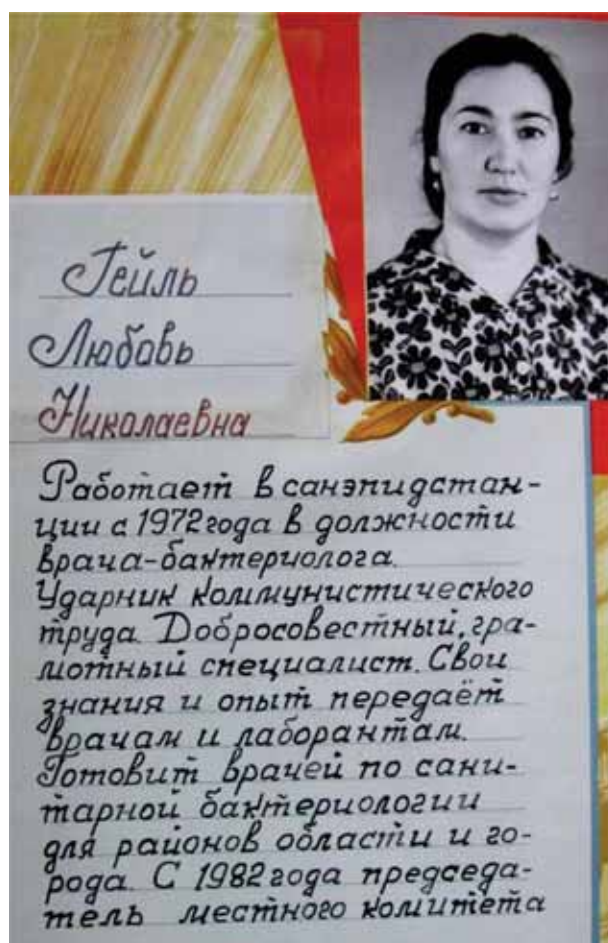 Гейль
Любовь
Николаевна
Работает в санэпидстан-
ции с 1972 года в должности
врача-бактериолога.
Ударник коммунистического
труда. Добросовестный, гра-
мотный специалист. Свои
знания и опыт передаёт
врачам и лаборантам.
Готовит врачей по сани-
тарной бактериологии
для районов области и го-
рода. С 1982 года председа-
тель местного комитета